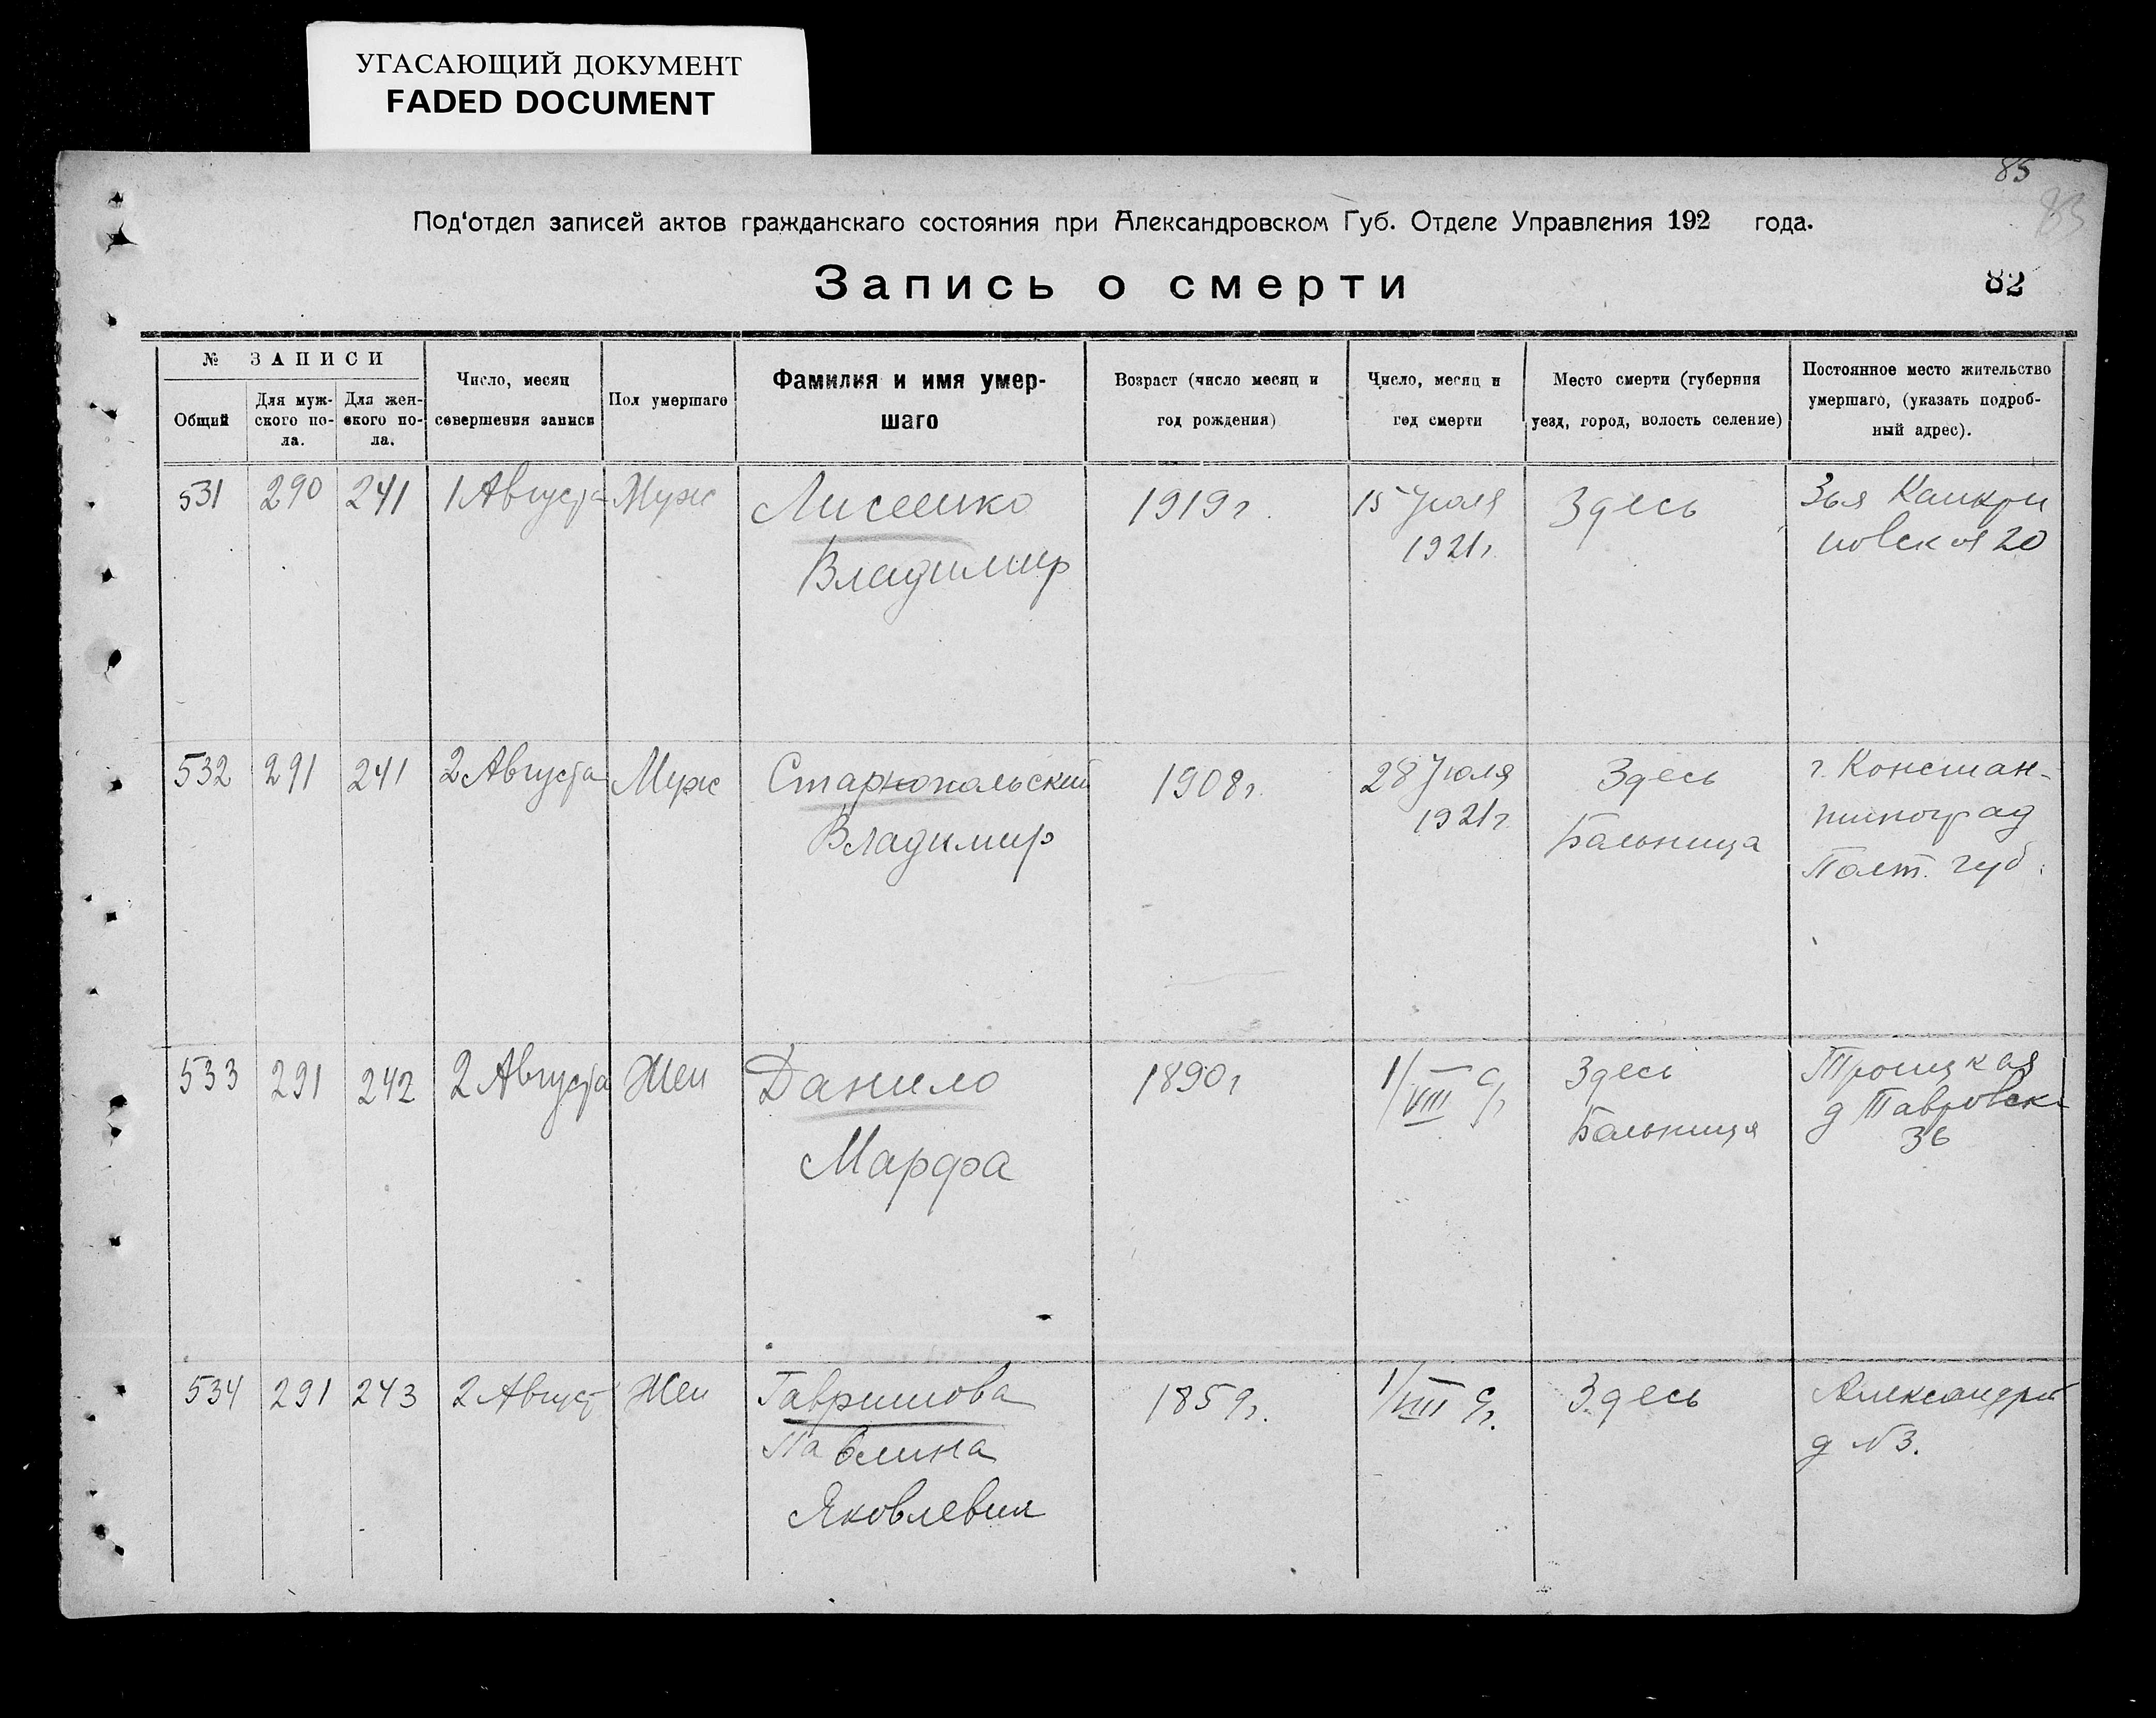 УГАСАЮЩИЙ ДОКУМЕНТ
FADED DOCUMENT
85
85
Под‘отдел записей актов гражданскаго состояния при Александровском Губ. Отделе Управления 192 года.
Запись о смерти
82
№ ЗАПИСИ
Общий
Для муж-
ского по-
ла.
Для жен-
ского по-
ла.
Число, месяц
совершения записи
Пол умершаго
Фамилия и имя умер-
шаго
Возраст (число месяц и
год рождения)
Число, месяц и
год смерти
Место смерти (губерния
уезд, город, волость селение)
Постоянное место жительство
умершаго, (указать подроб-
ный адрес).
531 290 241 1 Августа Муж
Лисенко
Владимир
1919 г.
15 Июля
1921 г.
Здесь
3ья Канкри
новская 20
532 291 241 2 Августа Муж
Старнопольский
Владимир
1908 г.
28 Июля
1921 г
Здесь
Бальница
г. Констан-
тиноград
Полт. губ.
533 291 242 2 Августа Жен
Данило
Марфа
1890 г
1/VIII с/г
Здесь
Бальница
Троицкая
д Тавровск
36
534 291 243 2 Август Жен
Гаврилова
Павлина
Яковлевна
1859 г.
1/VIII с/г.
Здесь
Александров
д № 3.